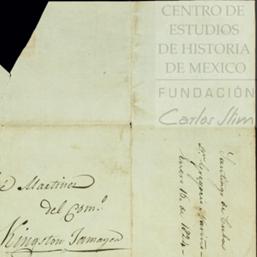 CENTRO DE
ESTUDIOS
DE HISTORIA
DE MEXICO
FUNDACIÓN
Carlos Slim
Martinez
del Com.º
Kingston Jamayca
Santiago de Cuba
Enero 16. de 1824